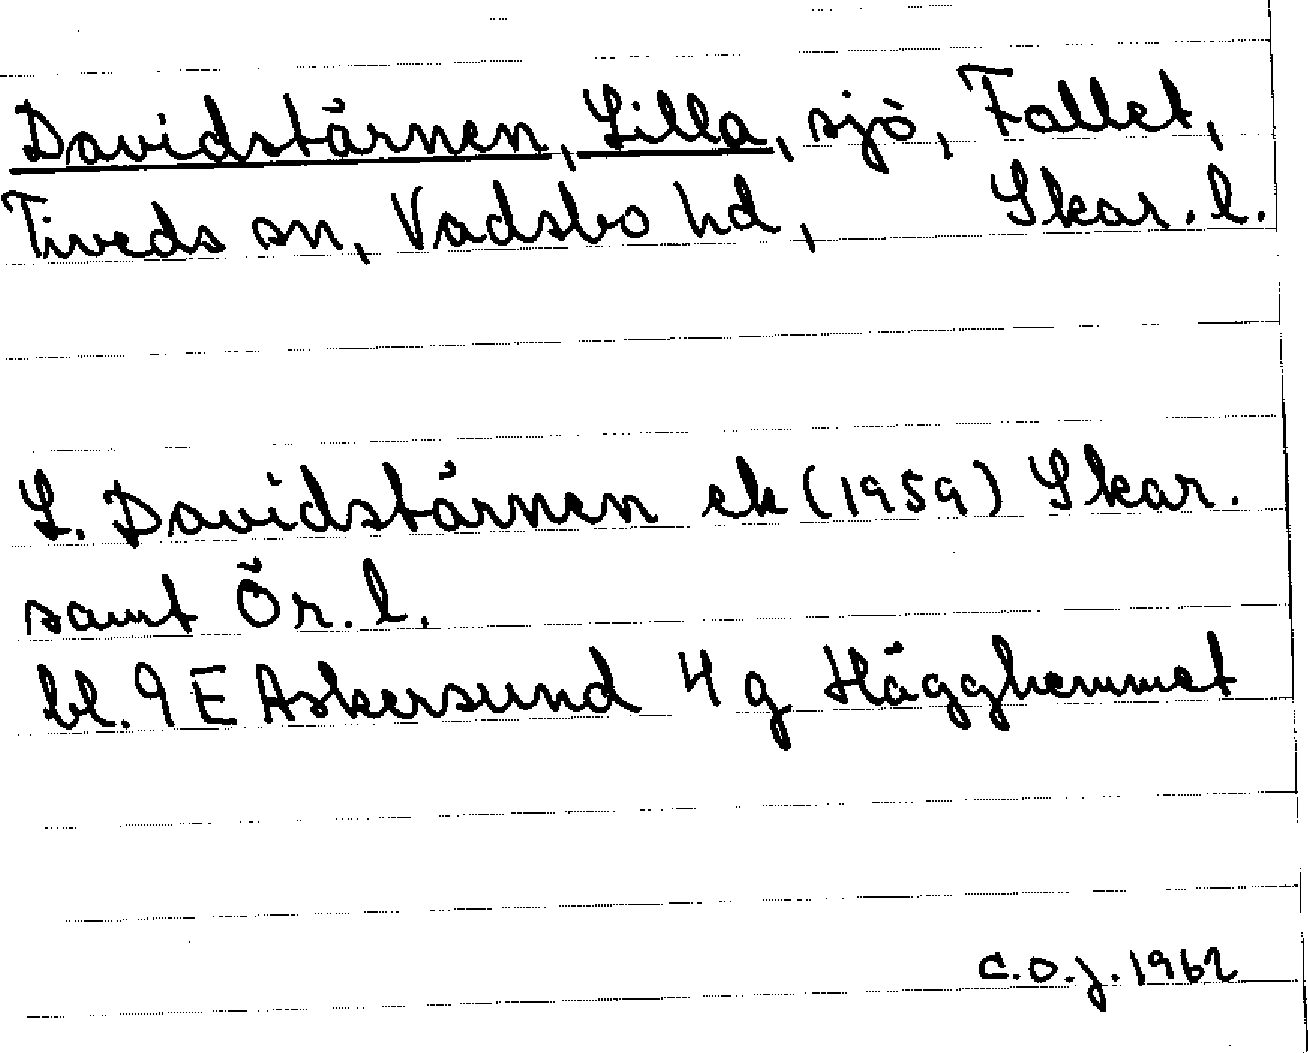 Davidstärnen, Lilla, sjö, Fallet,
Tiveds sn, Vadsbo hd, Skar. l.
L. Davidstärnen ek (1959) Skar.
samt Ör. l.
bl. 9 E Askersund 4 g Hägghemmet
C.O.J. 1962